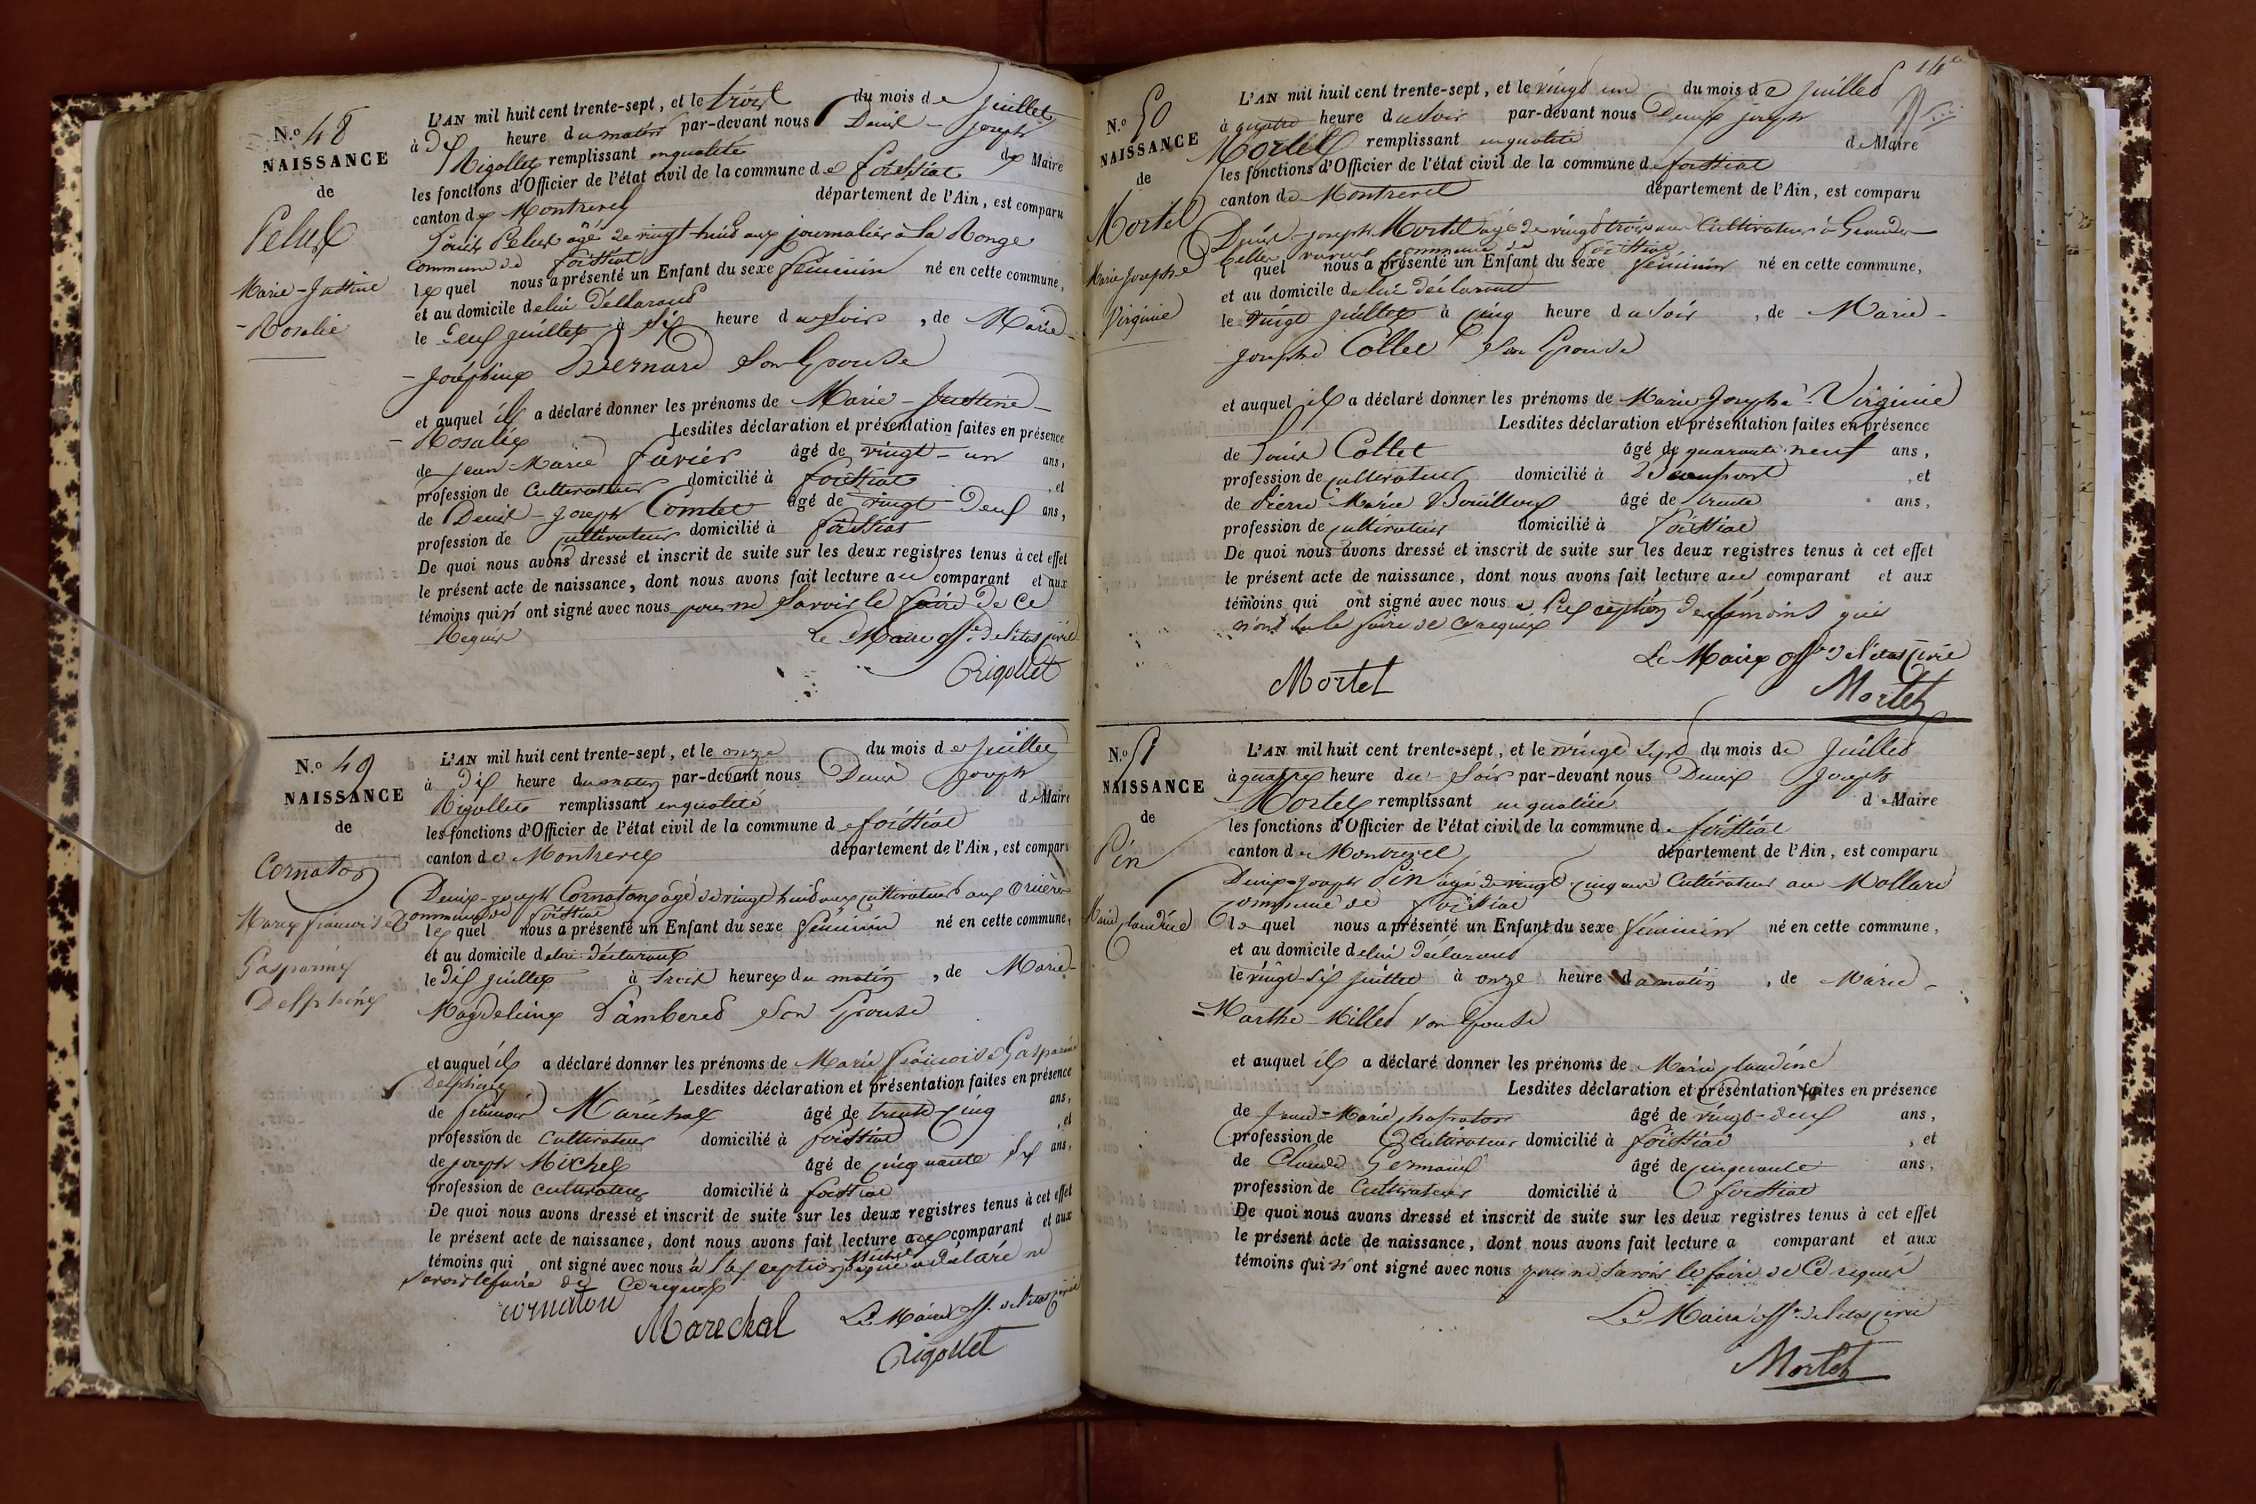 N.o 48
NAISSANCE
de
Pelus
Marie-Justine
-Rosalie
L'AN mil huit cent trente-sept, et le trois du mois de juillet
à dix heure du matin par-devant nous Denis-joseph
Rigollet remplissant en qualité de Maire
les fonctions d'Officier de l'état civil de la commune de foissiat
canton de Montrevel département de l'Ain, est comparu
Louis Pelus âgé de vingt huit ans journalier à la
commune de foissiat
lequel nous a présenté un Enfant du sexe féminin né en cette commune,
et au domicile de lui déclarant
le deux juillet à six heure du soir, de Marie-
-joséphine Bernard son épouse
et auquel il a déclaré donner les prénoms de Marie-Justine-
-Rosalie Lesdites déclaration et présentation faites en présence
de jean-Marie favier âgé de vingt-un ans,
profession de cultivateur domicilié à foissiat, et
de Denis-joseph Comtet âgé de vingt-deux ans,
profession de cultivateur domicilié à foissiat
De quoi nous avons dressé et inscrit de suite sur les deux registres tenus à cet effet
le présent acte de naissance, dont nous avons fait lecture au comparant et aux
témoins qui n'ont signé avec nous pour ne savoir le faire de ce
Requis Le Maire off. de l'état civil
Rigollet
N.o 49
NAISSANCE
de
Cornaton
Marie françoise
Gasparine
Delphine
L'AN mil huit cent trente-sept, et le onze du mois de juillet
à dix heure du matin par-devant nous Denis joseph
Rigollet remplissant en qualité de Maire
les fonctions d'Officier de l'état civil de la commune de foissiat
canton de Montrevel département de l'Ain, est comparu
Denis-joseph Cornaton âgé de vingt huit ans cultivateur aux
commune de foissiat
lequel nous a présenté un Enfant du sexe féminin né en cette commune,
et au domicile de lui déclarant
le dix juillet à trois heures du matin, de Marie-
Magdeleine Lambered son épouse
et auquel il a déclaré donner les prénoms de Marie françoise Gasparine
Delphine Lesdites déclaration et présentation faites en présence
de françois Maréchal âgé de trente cinq ans,
profession de cultivateur domicilié à foissiat, et
de joseph Michel âgé de cinquante six ans,
profession de cultivateur domicilié à foissiat
De quoi nous avons dressé et inscrit de suite sur les deux registres tenus à cet effet
le présent acte de naissance, dont nous avons fait lecture au comparant et aux
témoins qui ont signé avec nous à l'exception de Michel qui a déclaré ne
savoir le faire de ce requis
cornaton Marechal Le Maire off. de l'état civil
Rigollet
14
N.o 50
NAISSANCE
de
Mortel
Marie Josephe
Virginie
L'AN mil huit cent trente-sept, et le vingt un du mois de juillet
à quatre heure du soir par-devant nous Denis joseph
Mortel remplissant en qualité de Maire
les fonctions d'Officier de l'état civil de la commune de foissiat
canton de Montrevel département de l'Ain, est comparu
Denis-joseph Mortel âgé de vingt trois ans Cultivateur à
commune de foissiat
lequel nous a présenté un Enfant du sexe féminin né en cette commune,
et au domicile de lui déclarant
le vingt juillet à cinq heure du soir, de Marie-
josephe Collet son épouse
et auquel il a déclaré donner les prénoms de Marie josephe Virginie
Lesdites déclaration et présentation faites en présence
de Louis Collet âgé de quarante neuf ans,
profession de cultivateur domicilié à, et
de Pierre Marie Bouilloux âgé de trente ans,
profession de cultivateur domicilié à foissiat
De quoi nous avons dressé et inscrit de suite sur les deux registres tenus à cet effet
le présent acte de naissance, dont nous avons fait lecture au comparant et aux
témoins qui ont signé avec nous à l'exception des témoins qui
n'ont su le faire de ce requis
Le Maire off. de l'état civil
Mortel Mortel
N.o 51
NAISSANCE
de
Pin
Marie claudine
L'AN mil huit cent trente-sept, et le vingt sept du mois de juillet
à quatre heure du soir par-devant nous Denis joseph
Mortel remplissant en qualité de Maire
les fonctions d'Officier de l'état civil de la commune de foissiat
canton de Montrevel département de l'Ain, est comparu
Denis-joseph Pin âgé de vingt cinq ans Cultivateur au Mollard
commune de foissiat
lequel nous a présenté un Enfant du sexe féminin né en cette commune,
et au domicile de lui déclarant
le vingt-six juillet à onze heure du matin, de Marie-
=Marthe Millet son épouse
et auquel il a déclaré donner les prénoms de Marie claudine
Lesdites déclaration et présentation faites en présence
de jean-Marie âgé de vingt-deux ans,
profession de Cultivateur domicilié à foissiat, et
de Claude Germain âgé de cinquante ans,
profession de Cultivateur domicilié à foissiat
De quoi nous avons dressé et inscrit de suite sur les deux registres tenus à cet effet
le présent acte de naissance, dont nous avons fait lecture a comparant et aux
témoins qui n'ont signé avec nous pour ne savoir le faire de ce requis
Le Maire off. de l'état civil
Mortel